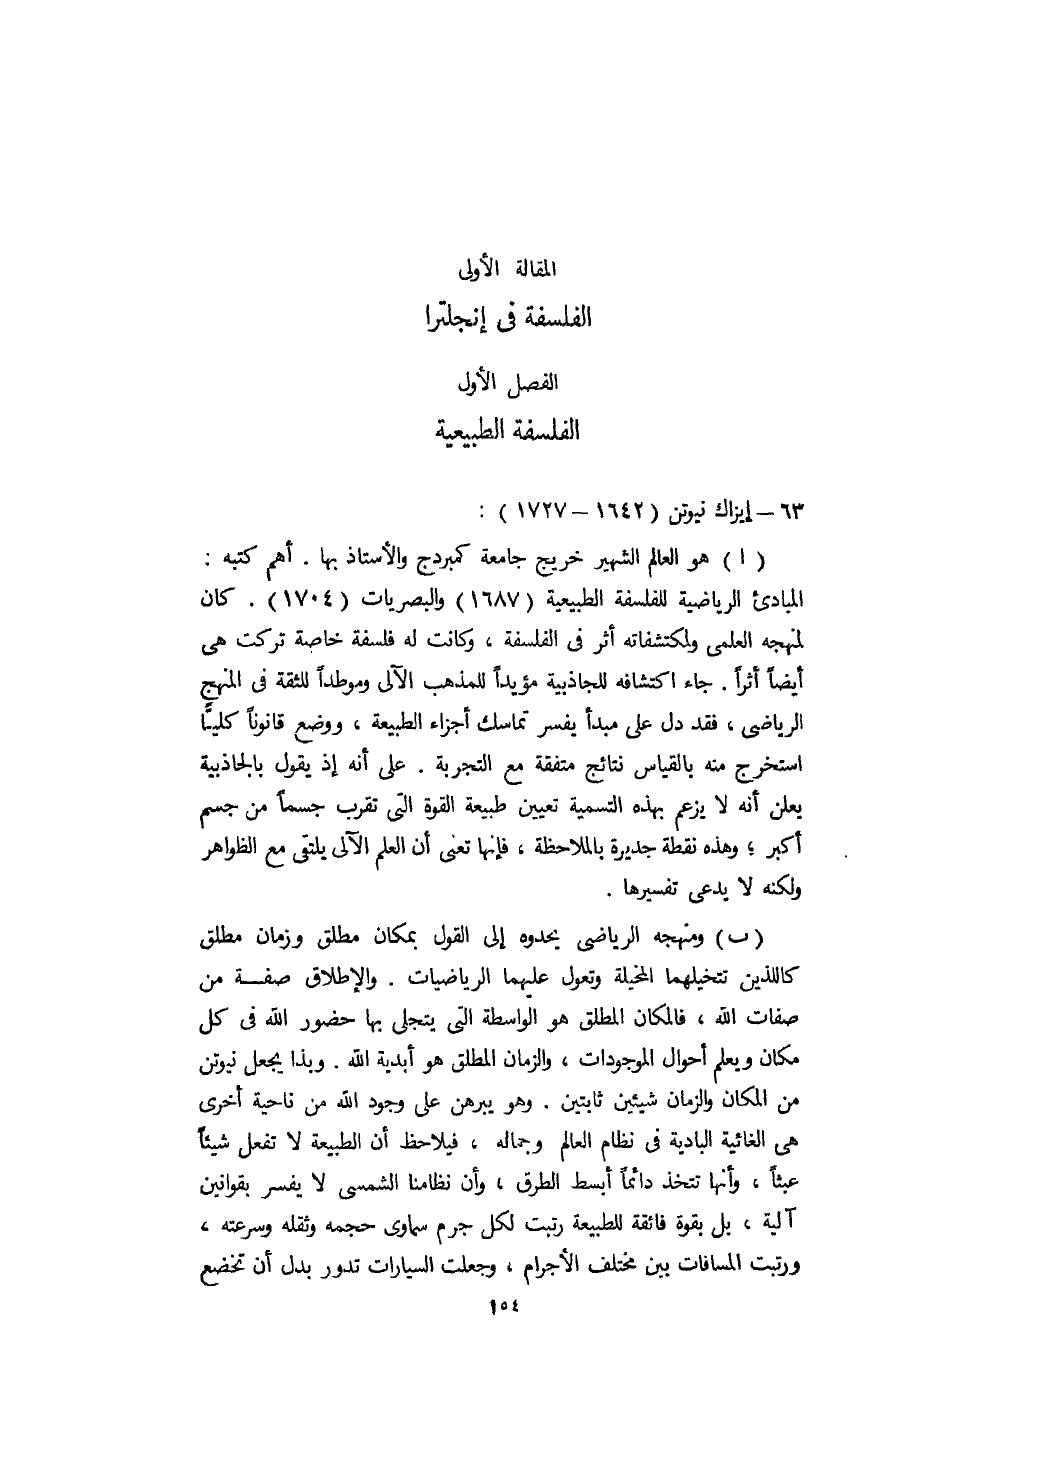 المقالة الأولى
الفلسفة فى إنجلترا
الفصل الأول
الفلسفة الطبيعية
٦٣ – إيزاك نيوتن ( ١٦٤٢ – ١٧٢٧ ) :
( ا ) هو العالم الشهير خريج جامعة كمبردج والأستاذ بها . أهم كتبه :
المبادئ الرياضية للفلسفة الطبيعية (١٦٨٧) والبصريات (١٧٠٤) . كان
لمنهجه العلمى ولمكتشفاته أثر فى الفلسفة ، وكانت له فلسفة خاصة تركت هى
أيضاً أثراً . جاء اكتشافه للجاذبية مؤيداً للمذهب الآلى وموطداً للثقة فى المنهج
الرياضى ، فقد دل على مبدأ يفسر تماسك أجزاء الطبيعة ، ووضع قانوناً كليًّا
استخرج منه بالقياس نتائج متفقة مع التجربة . على أنه إذ يقول بالجاذبية
يعلن أنه لا يزعم بهذه التسمية تعيين طبيعة القوة التى تقرب جسماً من جسم
أكبر ؛ وهذه نقطة جديرة بالملاحظة ، فإنها تعنى أن العلم الآلى يلتقى مع الظواهر
ولكنه لا يدعى تفسيرها .
(ب) ومنهجه الرياضى يحدوه إلى القول بمكان مطلق وزمان مطلق
كاللذين تتخيلهما المخيلة وتعول عليهما الرياضيات . والإطلاق صفة من
صفات الله ، فالمكان المطلق هو الواسطة التى يتجلى بها حضور الله فى كل
مكان ويعلم أحوال الموجودات ، والزمان المطلق هو أبدية الله . وبذا يجعل نيوتن
من المكان والزمان شيئين ثابتين . وهو يبرهن على وجود الله من ناحية أخرى
هى الغائية البادية فى نظام العالم وجماله ، فيلاحظ أن الطبيعة لا تفعل شيئاً
عبثاً ، وأنها تتخذ دائماً أبسط الطرق ، وأن نظامنا الشمسى لا يفسر بقوانين
آلية ، بل بقوة فائقة للطبيعة رتبت لكل جرم سماوى حجمه وثقله وسرعته ،
ورتبت المسافات بين مختلف الأجرام ، وجعلت السيارات تدور بدل أن تخضع
١٥٤